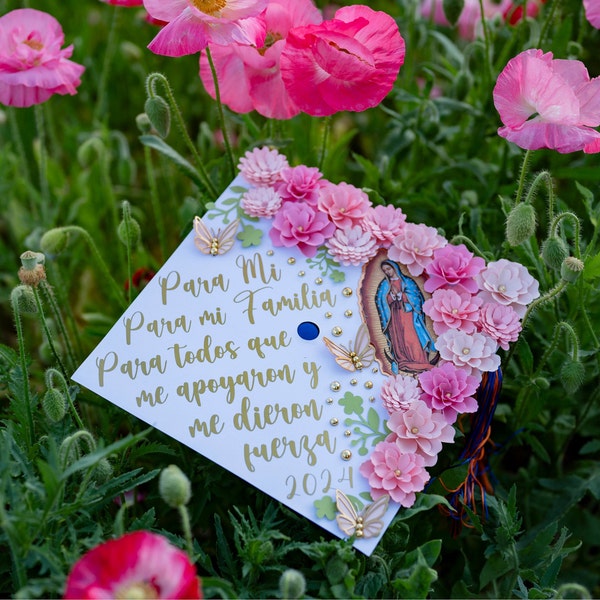 Para Mi
Para mi Familia
Para todos que
me apoyaron y
me dieron
fuerza
2024